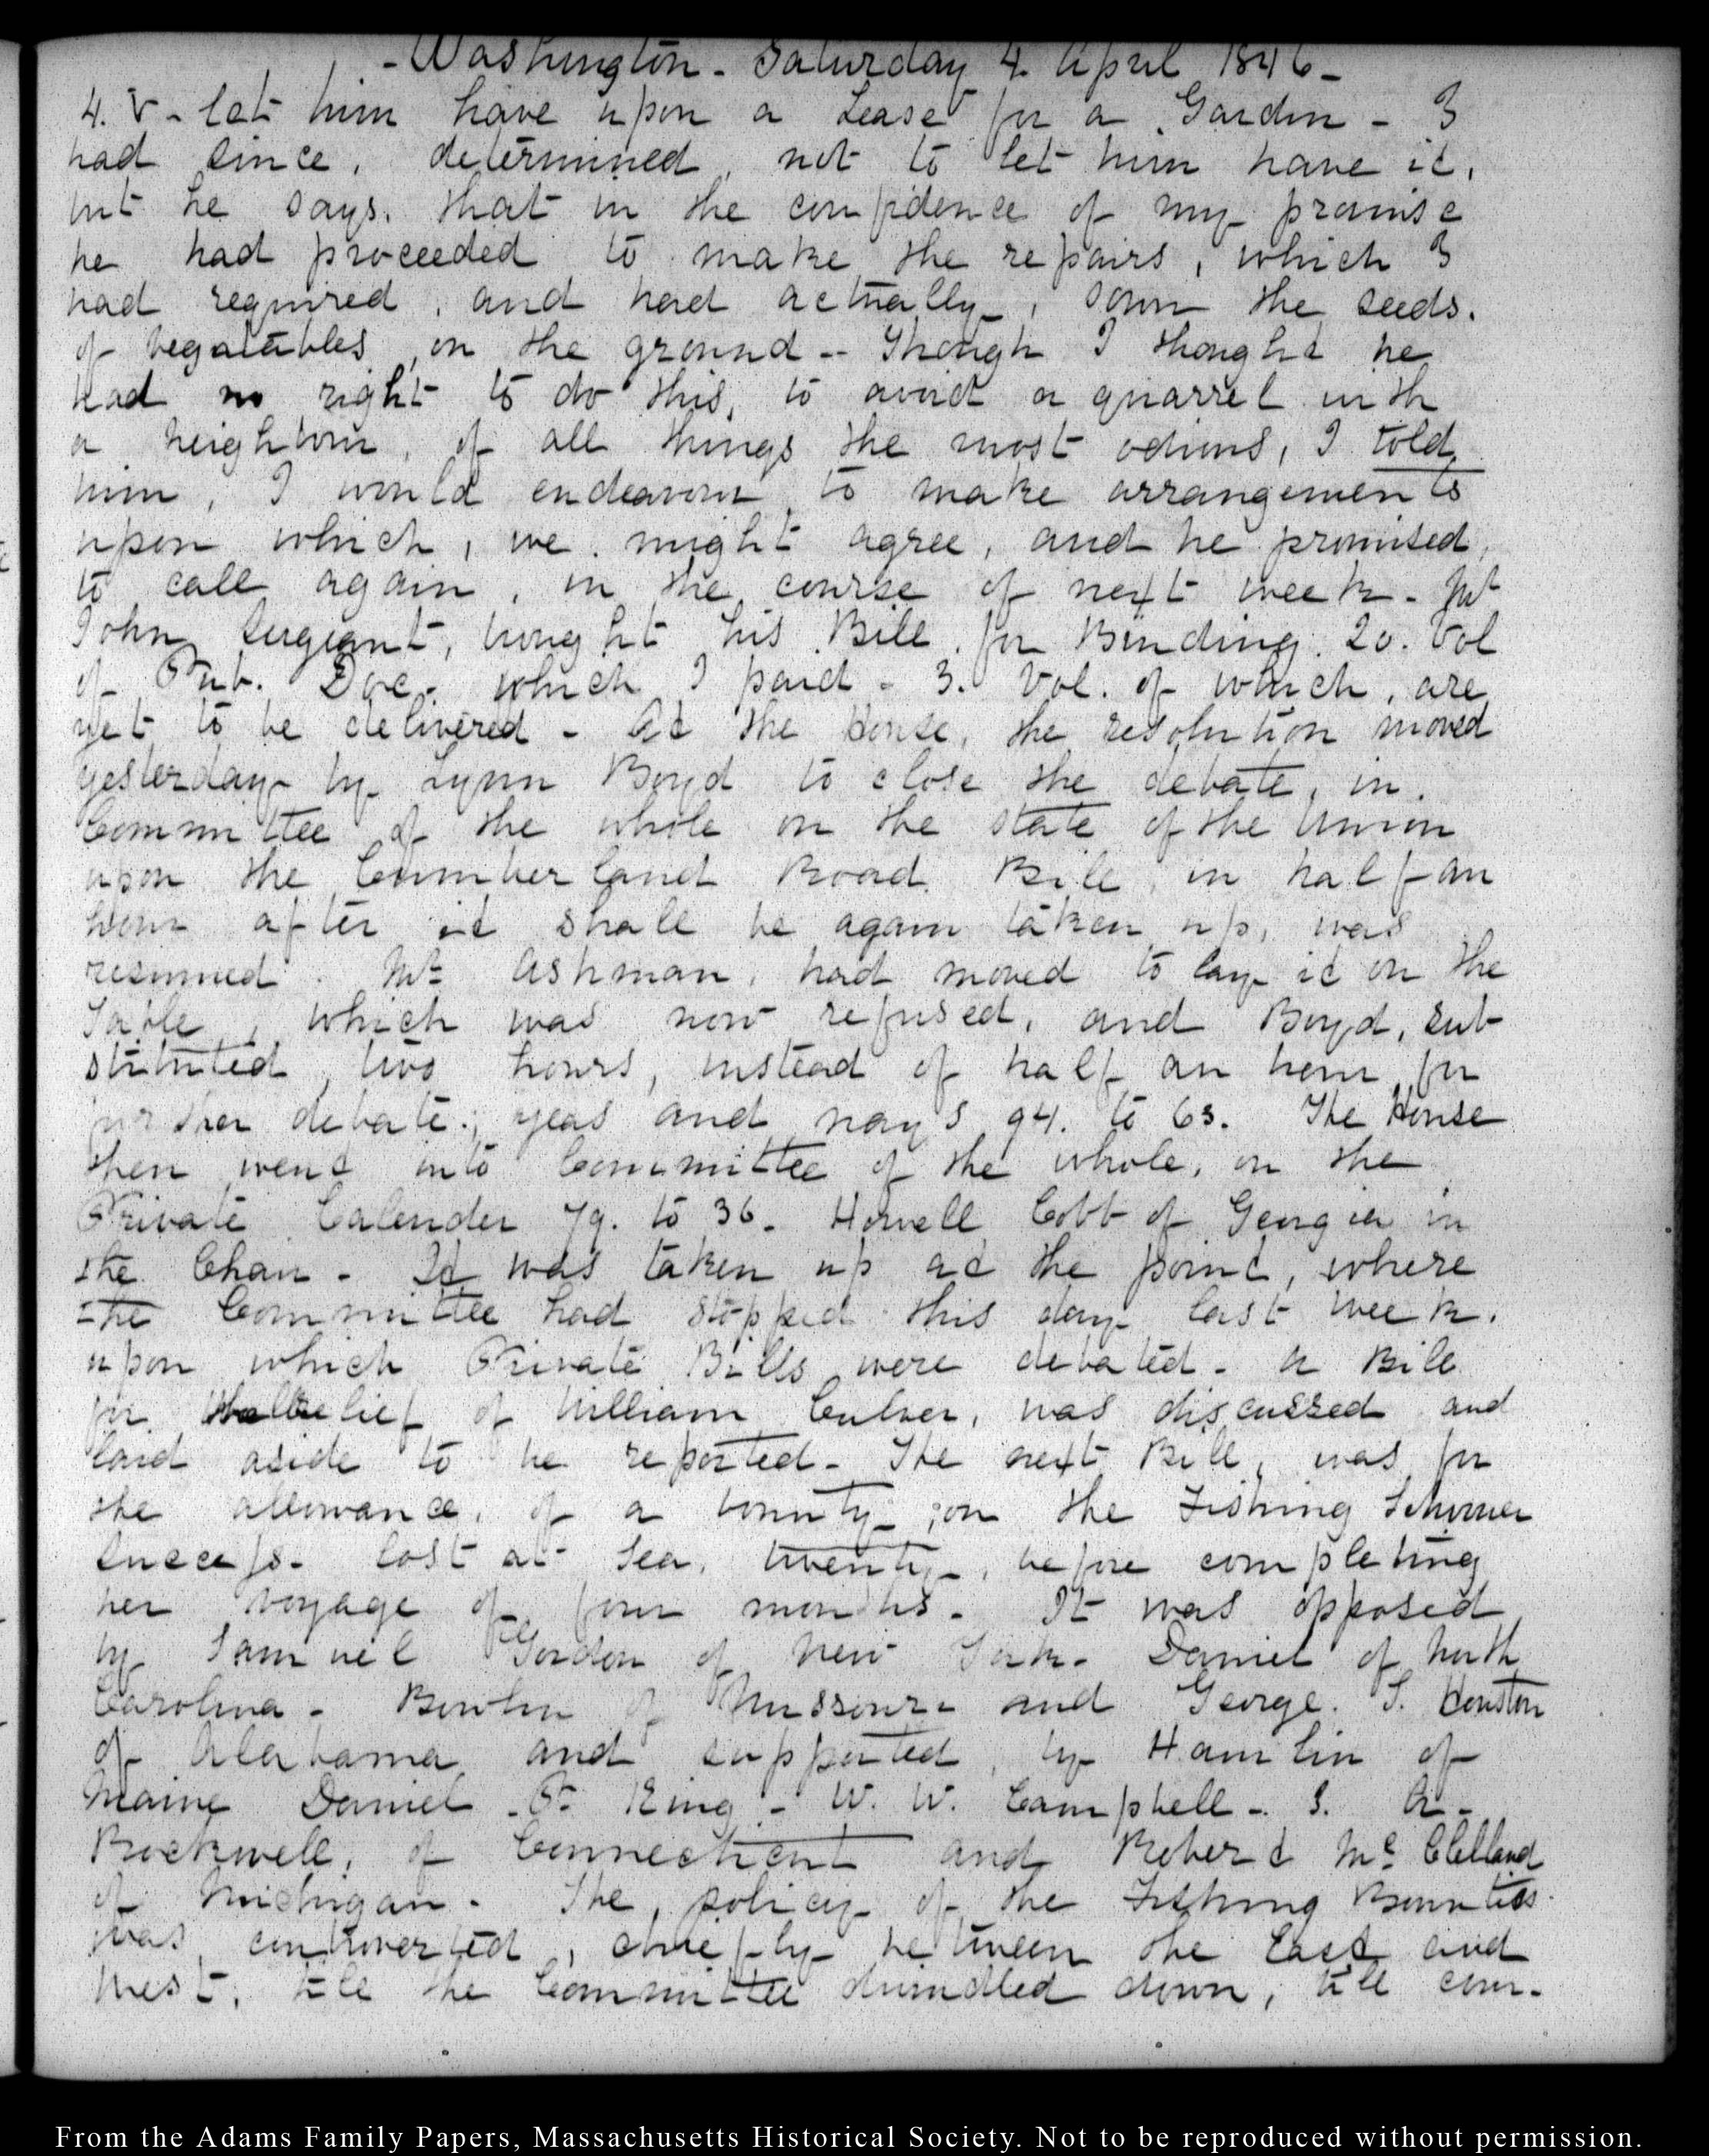 - Washington - Saturday 4. April 1846 -
4. V - let him have upon a Lease for a Garden - I
had since, determined, not to let him have it,
but he says, that in the confidence of my promise
he had proceeded to make the repairs, which I
had required, and had actually, sown the seeds.
of vegatables, in the ground -- Though I thought he
had no right to do this, to avoid a quarrel with
a neighbour, of all things the most odious, I told
him, I would endeavour to make arrangements
upon which, we might agree, and he promised,
to call again, in the course of next week -
John Sergeant, brought his Bill for Binding 20. Vol
of Pub. Doc. which I paid - 3. Vol. of which, are
yet to be delivered - At the House, the resolution moved
yesterday by Lynn Boyd to close the debate, in
Committee of the whole on the state of the Union
upon the Cumberland Road Bill, in half an
hour after it shall be again taken up, was
resumed. Mr Ashman, had moved to lay it on the
Table, which was now refused, and Boyd, sub
stituted two hours, instead of half an hour, for
further debate; yeas and nays 94. to 63. The House
then went into Committee of the whole, on the
Private Calender 79. to 36. Howell Cobb of Georgia in
the Chair - It was taken up at the point, where
the Committee had stopped this day last week.
upon which Private Bills were debated - A Bill
for relief of William Culver, was discussed and
laid aside to be reported - The next Bill, was for
the allowance, of a bounty, on the Fishing Schooner
Success - Lost at Sea, twenty, before completing
her voyage of four months - It was opposed
by Samuel Gordon of New York - Daniel of North
Carolina - Bowlin of Missouri and George. S. Houston
of Alabama and supported, by Hamlin of
Maine Daniel P. King - W. W. Campbell - J. A -
Rockwell, of Connecticut and Robert McClelland
of Michigan - The, policy of the Fishing Bounties
was controverted, chiefly between the East and
West, till the Committee dwindled down, till com-
From the Adams Family Papers, Massachusetts Historical Society. Not to be reproduced without permission.